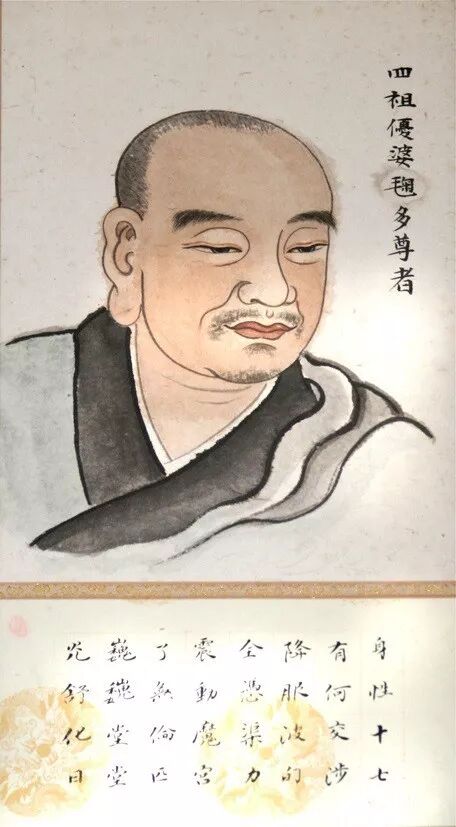 四祖優婆毱多尊者
身性十七
有何交涉
降服波旬
全憑渠力
震動魔宮
了無倫匹
巍巍堂堂
灮舒化日